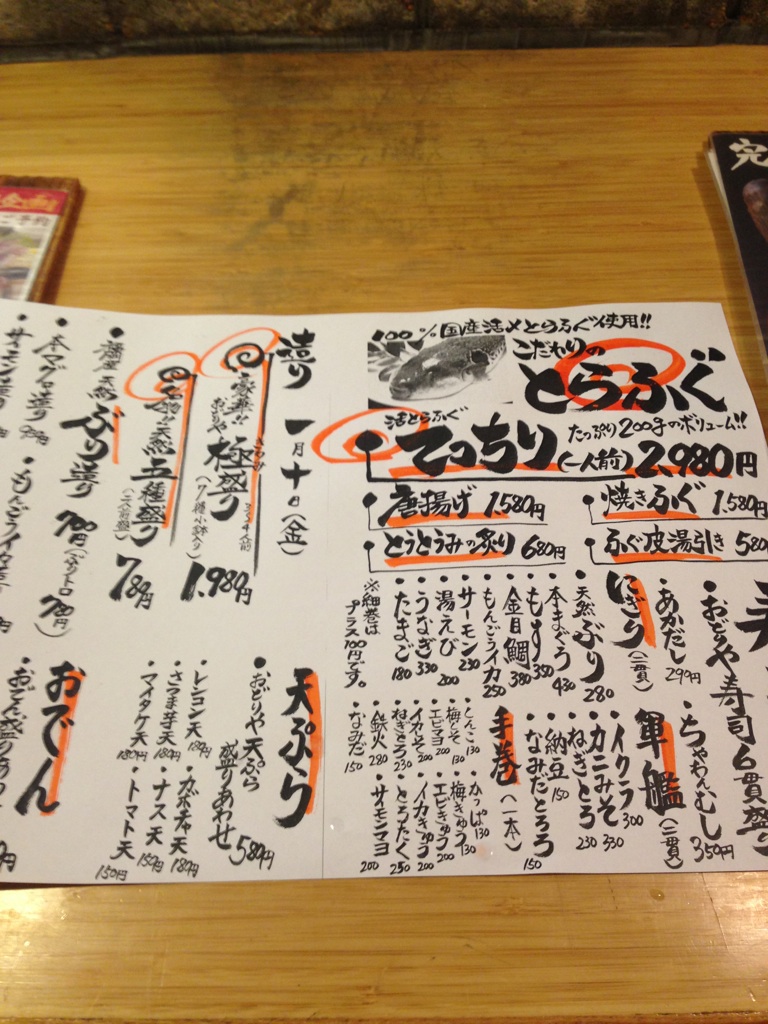 100%国産活〆とらふぐ使用!!
こだわりの
とらふぐ
活とらふぐ
てっちり(一人前)2,980円
たっぷり200gのボリューム!!
唐揚げ 1,580円
焼きふぐ 1,580円
とうとうみの炙り 680円
ふぐ皮湯引き 580
おどりや寿司6貫盛り
あかだし 299円
ちゃわんむし 350円
にぎり(二貫)
・天然ぶり 280
・本まぐろ 430
・もず 350
・金目鯛 380
・もんごうイカ 250
・サーモン 230
・湯えび 200
・うなぎ 330
・たまご 180
※細巻は
プラス100円です。
軍艦(二貫)
・イクラ 300
・カニみそ 330
・ねぎとろ 230
・納豆 150
・なみだとろろ 150
手巻(一本)
・しんこ 130
・梅しそ 130
・エビマヨ 200
・イカしそ 200
・ねぎとろ 230
・鉄火 280
・なみだ 150
・かっぱ 130
・梅きゅう 130
・エビきゅう 200
・イカきゅう 200
・とろたく 250
・サーモンマヨ 200
造り 一月十日(金)
豪華!!おどりや極盛り
きわみ
(7種小鉢入り)
3〜4人前
1,980円
五種盛り
(二人前盛)
789円
・天然ぶり造り
780円(ハラトロ780円)
・本マグロ造り
・もんごうイカ
・サーモン造り
天ぷら
・おどりや天ぷら
盛りあわせ 580円
・レンコン天 180円
・さつま芋天 180円
・マイタケ天 180円
・カボチャ天 180円
・ナス天 150円
・トマト天 150円
おでん
おでん盛りあわせ
完